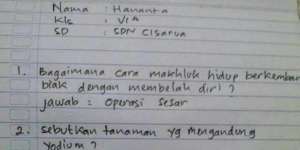 Nama : Hananta
Kls : VIA
SD : SDN Cisarua
1. Bagaimana cara makhluk hidup berkemban
biak dengan membelah diri ?
jawab : Operasi sesar
2. Sebutkan tanaman yg mengandung
yodium ?